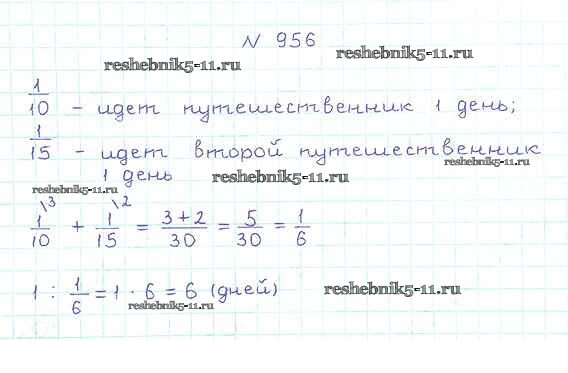 N 956
reshebnik5-11.ru
reshebnik5-11.ru
1/10 - идет путешественник 1 день;
1/15 - идет второй путешественник
reshebnik5-11.ru
1 день
reshebnik5-11.ru
reshebnik5-11.ru
1/10 \3 + 1/15 \2 = 3+2/30 = 5/30 = 1/6
1 : 1/6 = 1 · 6 = 6 (дней)
reshebnik5-11.ru
reshebnik5-11.ru